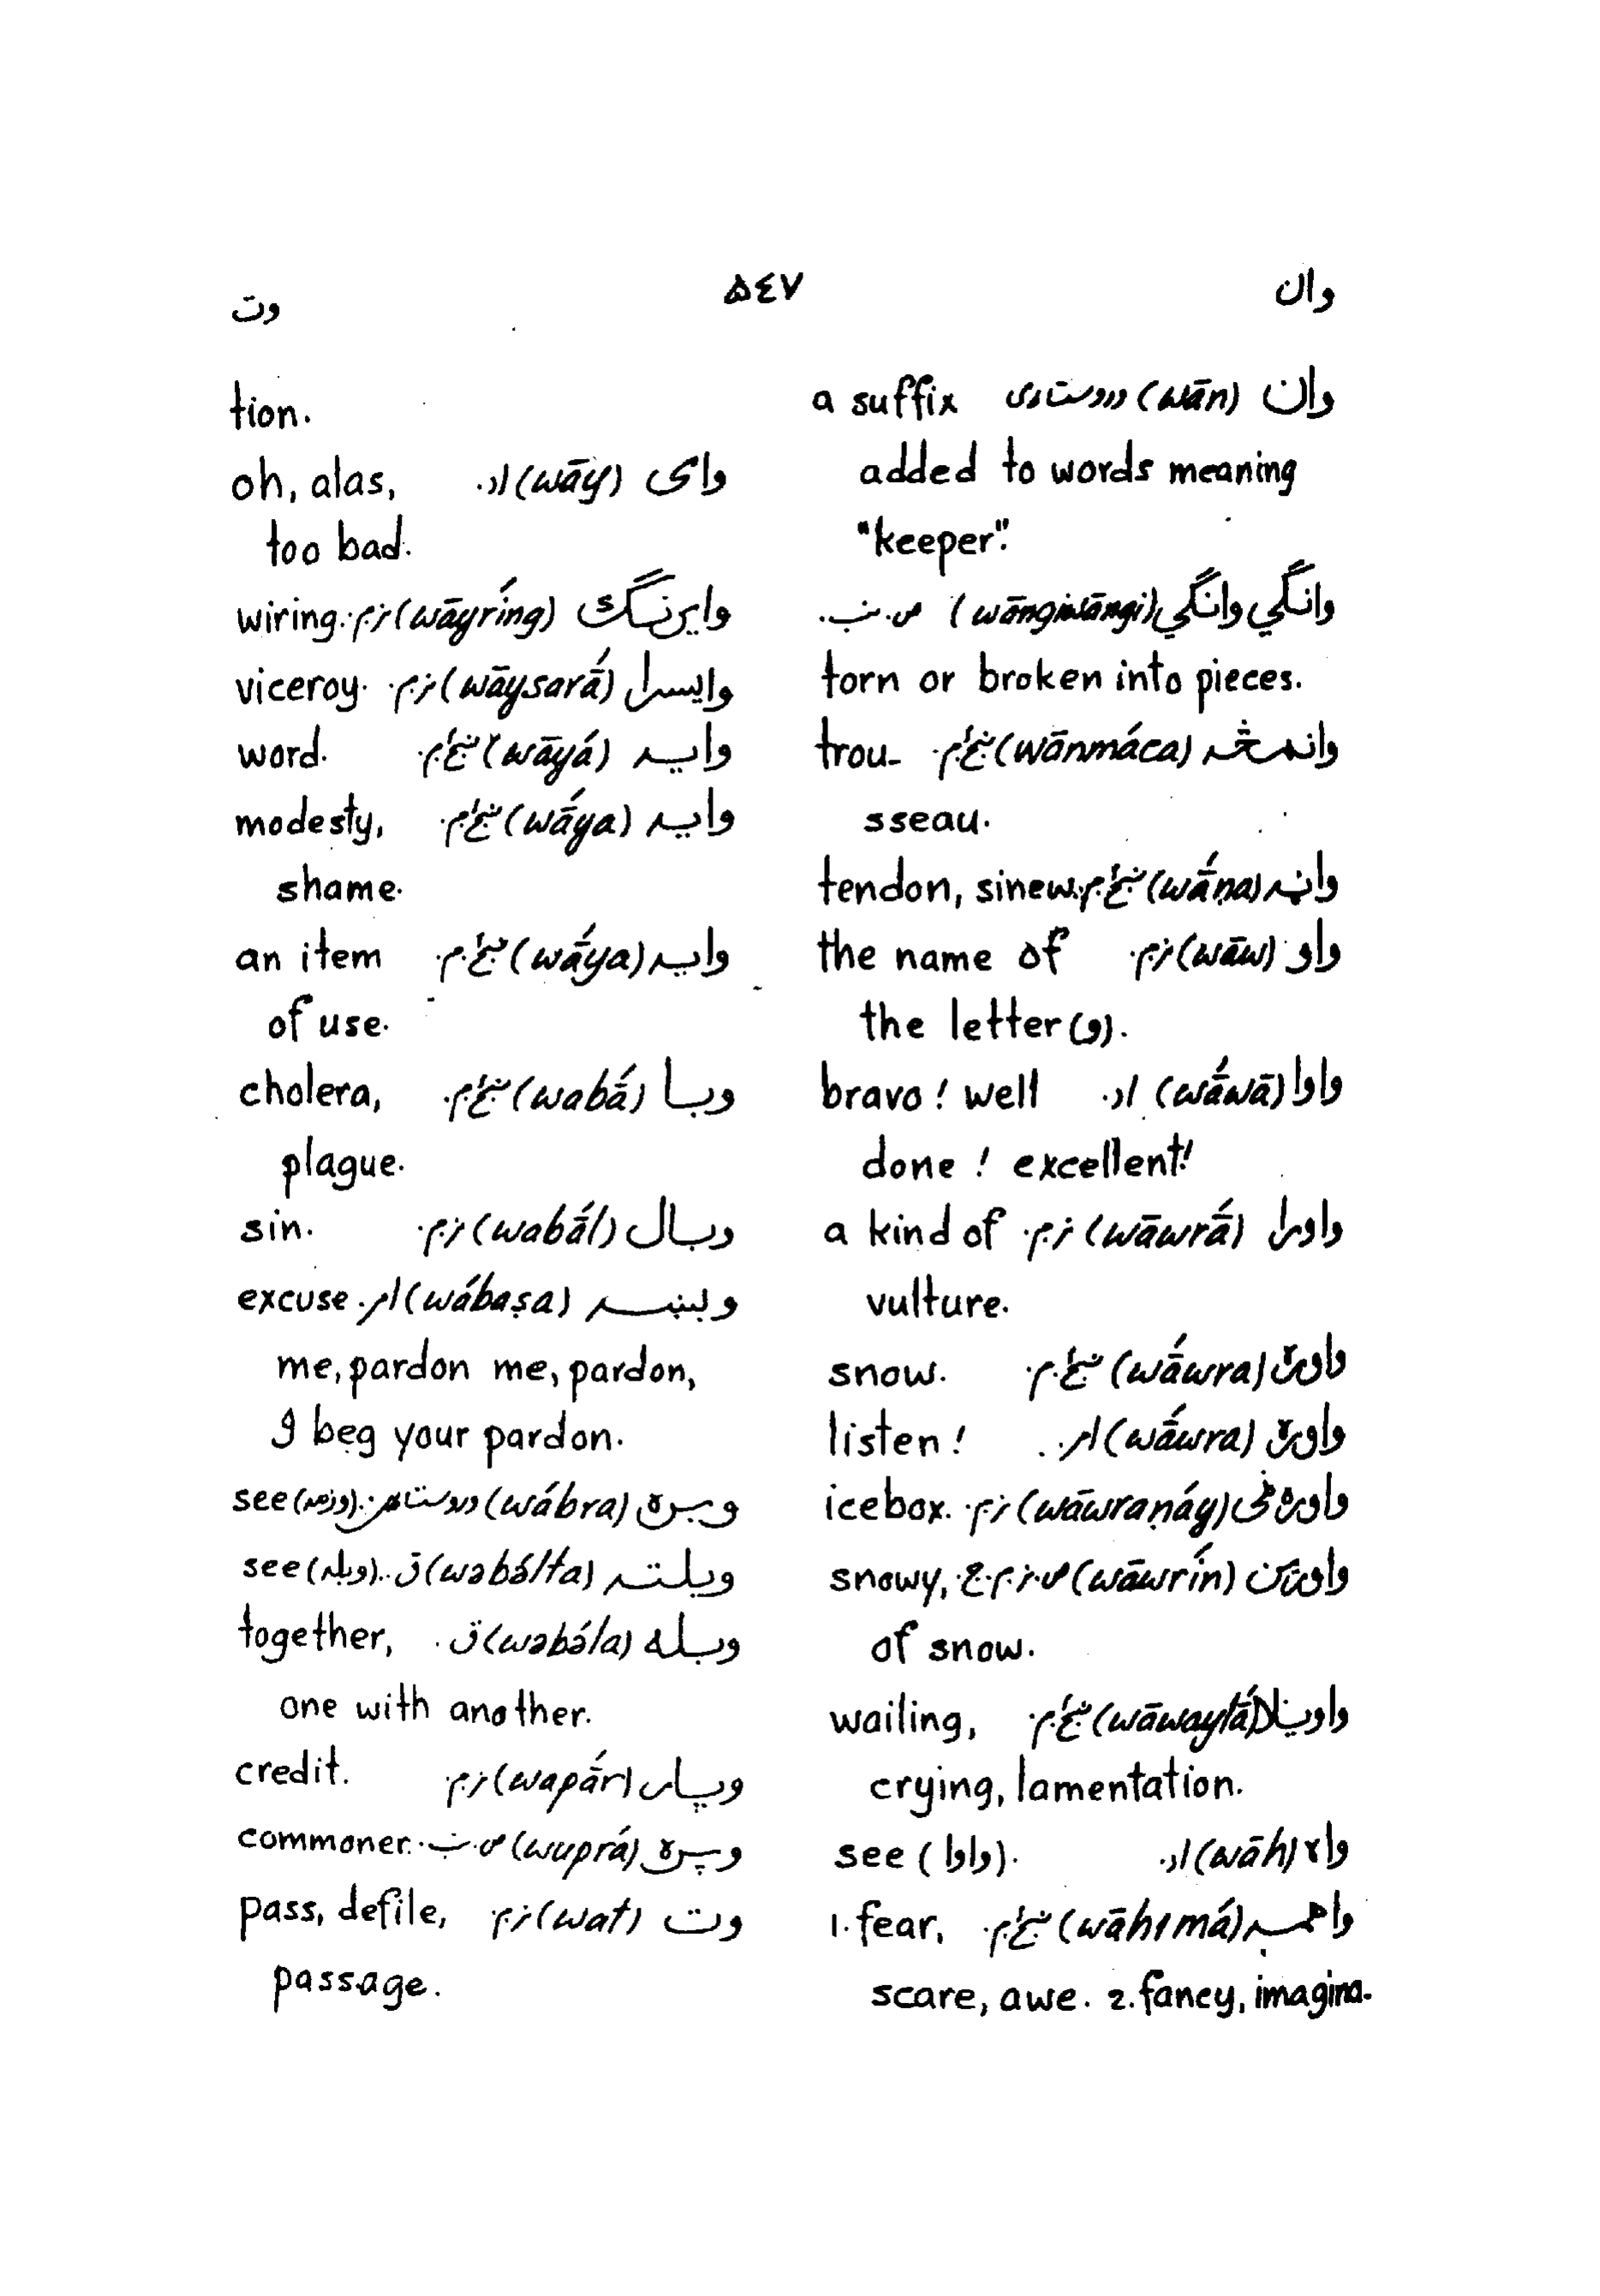 وان ٥٤٧ وت
وان (wān) دروستاړی a suffix
added to words meaning
"keeper".
وانگي وانگي (wāngiwāngi) ص. ب.
torn or broken into pieces.
وانمڅه (wānmáca) trou-
sseau.
واڼه (wā́ṇa) tendon, sinew.
واو (wāw) ن.م. the name of
the letter (و).
واوا (wā́wā) اد. bravo! well
done! excellent!
واورا (wāwrā́) ن.م. a kind of
vulture.
واوره (wā́wra) snow.
واوره (wā́wra) امر. listen!
(wāwraṇáy) ن.م. icebox.
واورین (wāwrín) snowy,
of snow.
واویلا (wāwaylā́) wailing,
crying, lamentation.
واه (wāh) اد. see (واوا).
واهمه (wāhımá) 1. fear,
scare, awe. 2. fancy, imagina-
tion.
وای (wāy) اد. oh, alas,
too bad.
وایرنگ (wāyríng) ن.م. wiring.
وایسرا (wāysarā́) ن.م. viceroy.
وایه (wāyá) word.
وایه (wā́ya) modesty,
shame.
وایه (wā́ya) an item
of use.
وبا (wabā́) cholera,
plague.
وبال (wabā́l) ن.م. sin.
وبښه (wábaṣa) امر. excuse
me, pardon me, pardon,
I beg your pardon.
وبره (wábra) see
وبلته (wəbə́lta) ق. see (وبله).
وبله (wəbə́la) ق. together,
one with another.
وپار (wapā́r) ن.م. credit.
وپره (wuprá) ص. ب. commoner.
وت (wat) ن.م. pass, defile,
passage.